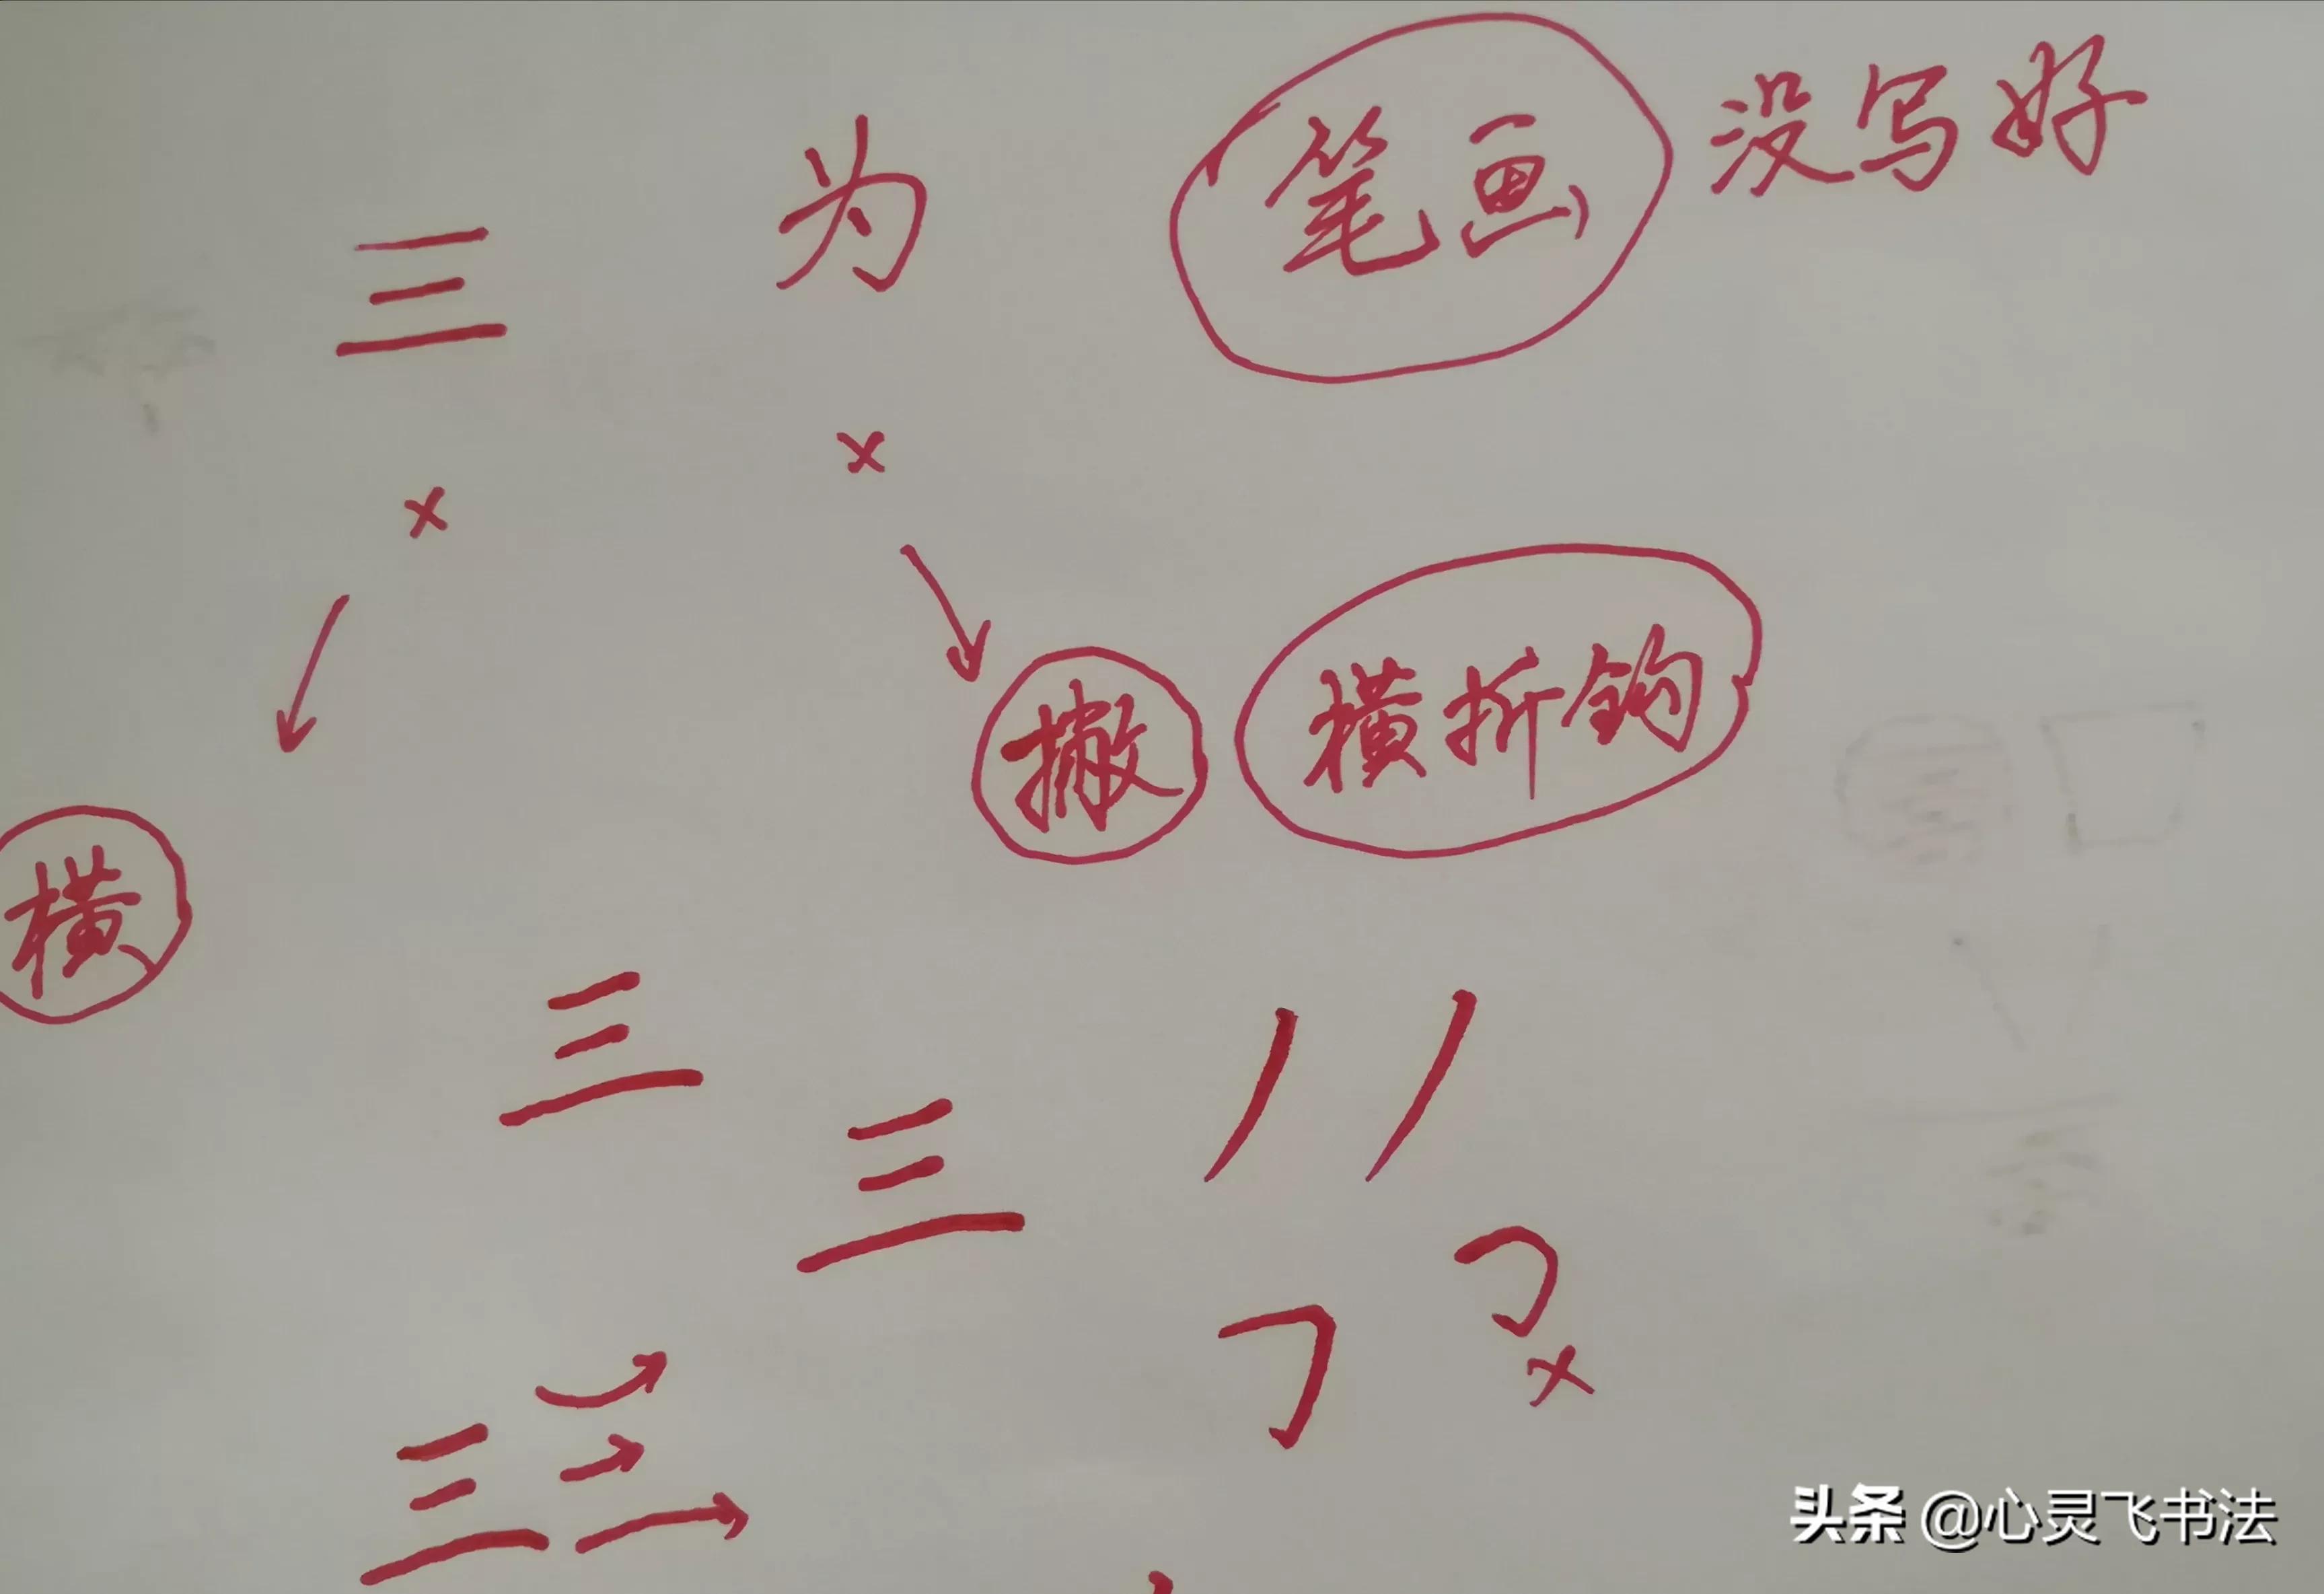 三 为 笔画 没写好
×
×
撇 横折钩
横
三
三
×
三
头条 @心灵飞书法